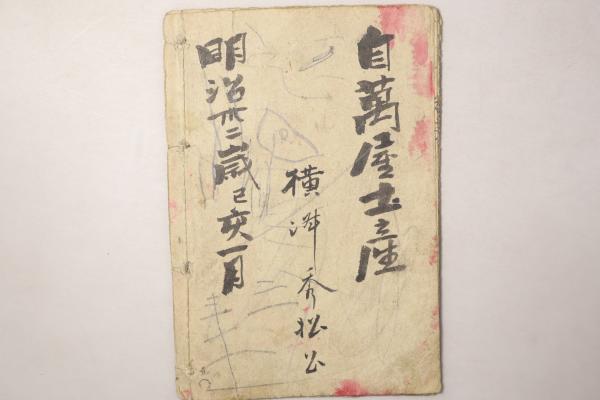 自萬屋土産
横 秀松公
明治卅二歳己亥一月